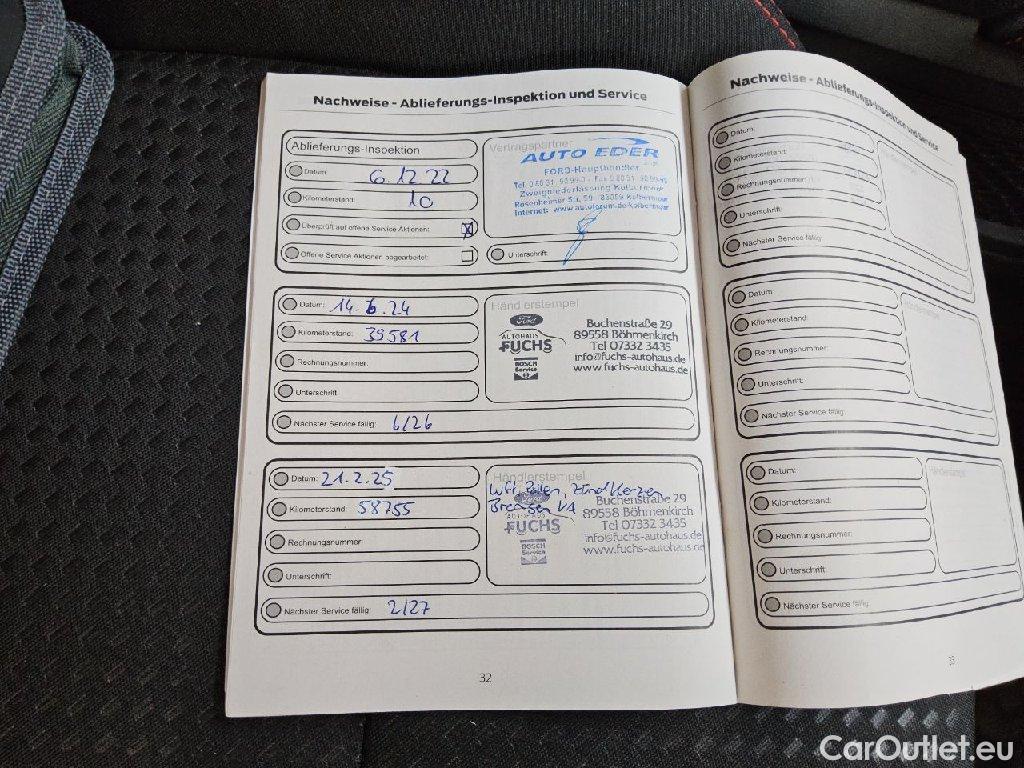 Nachweise - Ablieferungs-Inspektion und Service
Ablieferungs-Inspektion
Datum: 6.12.22
Kilometerstand: 10
Überprüft auf offene Service Aktionen: X
Offene Service Aktionen abgearbeitet:
Vertragspartner
AUTO EDER
FORD-Haupthändler
Zweigniederlassung Kolbermoor
Unterschrift:
Datum: 14.6.24
Kilometerstand: 39581
Rechnungsnummer:
Unterschrift:
Nächster Service fällig: 6/26
Händlerstempel
Ford
AUTOHAUS
FUCHS
BOSCH
Service
Buchenstraße 29
89558 Böhmenkirch
Tel 07332 3435
info@fuchs-autohaus.de
www.fuchs-autohaus.de
Datum: 21.2.25
Kilometerstand: 58755
Rechnungsnummer:
Unterschrift:
Nächster Service fällig: 2/27
Händlerstempel
Luft, Pollen, Zündkerzen
Bremsen VA
Ford
AUTOHAUS
FUCHS
BOSCH
Service
Buchenstraße 29
89558 Böhmenkirch
Tel 07332 3435
info@fuchs-autohaus.de
www.fuchs-autohaus.de
32
Nachweise - Ablieferungs-Inspektion und Service
Datum:
Kilometerstand:
Rechnungsnummer:
Unterschrift:
Nächster Service fällig:
Datum:
Kilometerstand:
Rechnungsnummer:
Unterschrift:
Nächster Service fällig:
Datum:
Kilometerstand:
Rechnungsnummer:
Unterschrift:
Nächster Service fällig:
33
CarOutlet.eu